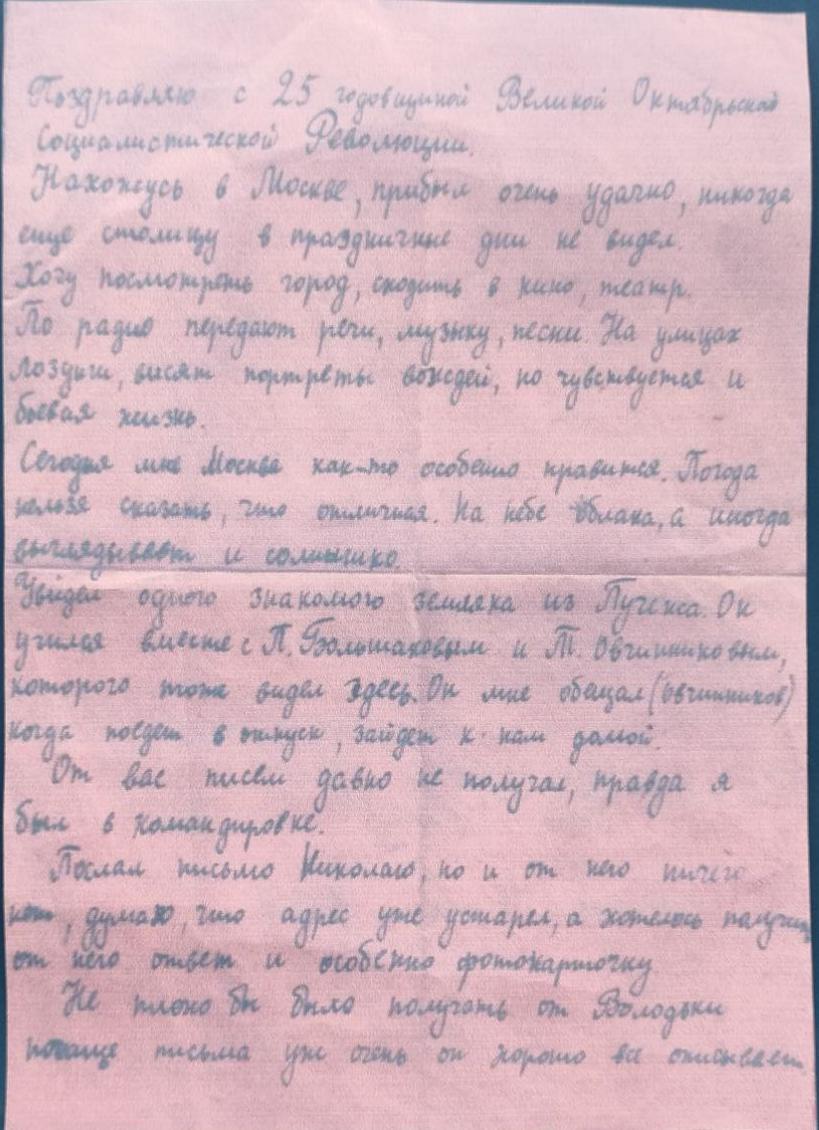 Поздравляю с 25 годовщиной Великой Октябрьской
Социалистической Революции.
Нахожусь в Москве, прибыл очень удачно, никогда
еще столицу в праздничные дни не видел.
Хочу посмотреть город, сходить в кино, театр.
По радио передают речи, музыку, песни. На улицах
лозунги, висят портреты вождей, но чувствуется и
боевая жизнь.
Сегодня мне Москва как-то особенно нравится. Погода
нельзя сказать, что отличная. На небе облака, а иногда
выглядывает и солнышко.
Увидел одного знакомого земляка из Пучежа. Он
учился вместе с П. Большаковым и Т. Овчинниковым,
которого тоже видел здесь. Он мне обещал (Овчинников)
когда поедет в отпуск, зайдет к нам домой.
От вас писем давно не получал, правда я
был в командировке.
Послал письмо Николаю, но и от него ничего
нет, думаю, что адрес уже устарел, а хотелось получить
от него ответ и особенно фотокарточку
Не плохо бы было получать от Володьки
почаще письма уж очень он хорошо все описывает